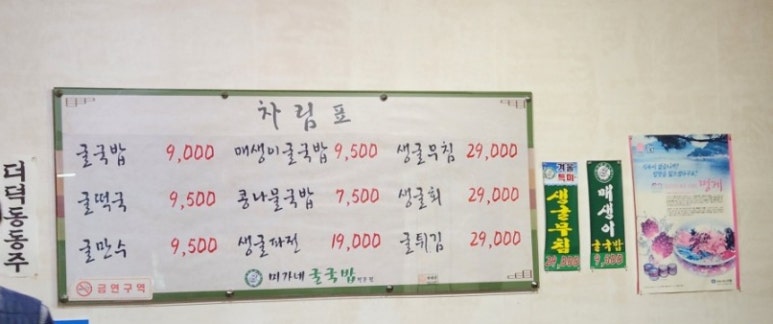 차림표
굴국밥 9,000 매생이굴국밥 9,500 생굴무침 29,000
굴떡국 9,500 콩나물국밥 7,500 생굴회 29,000
굴만수 9,500 생굴파전 19,000 굴튀김 29,000
굴국밥
금연구역
더덕동동주
겨울
특미
생굴무침
29,000
매생이
굴국밥
9,500